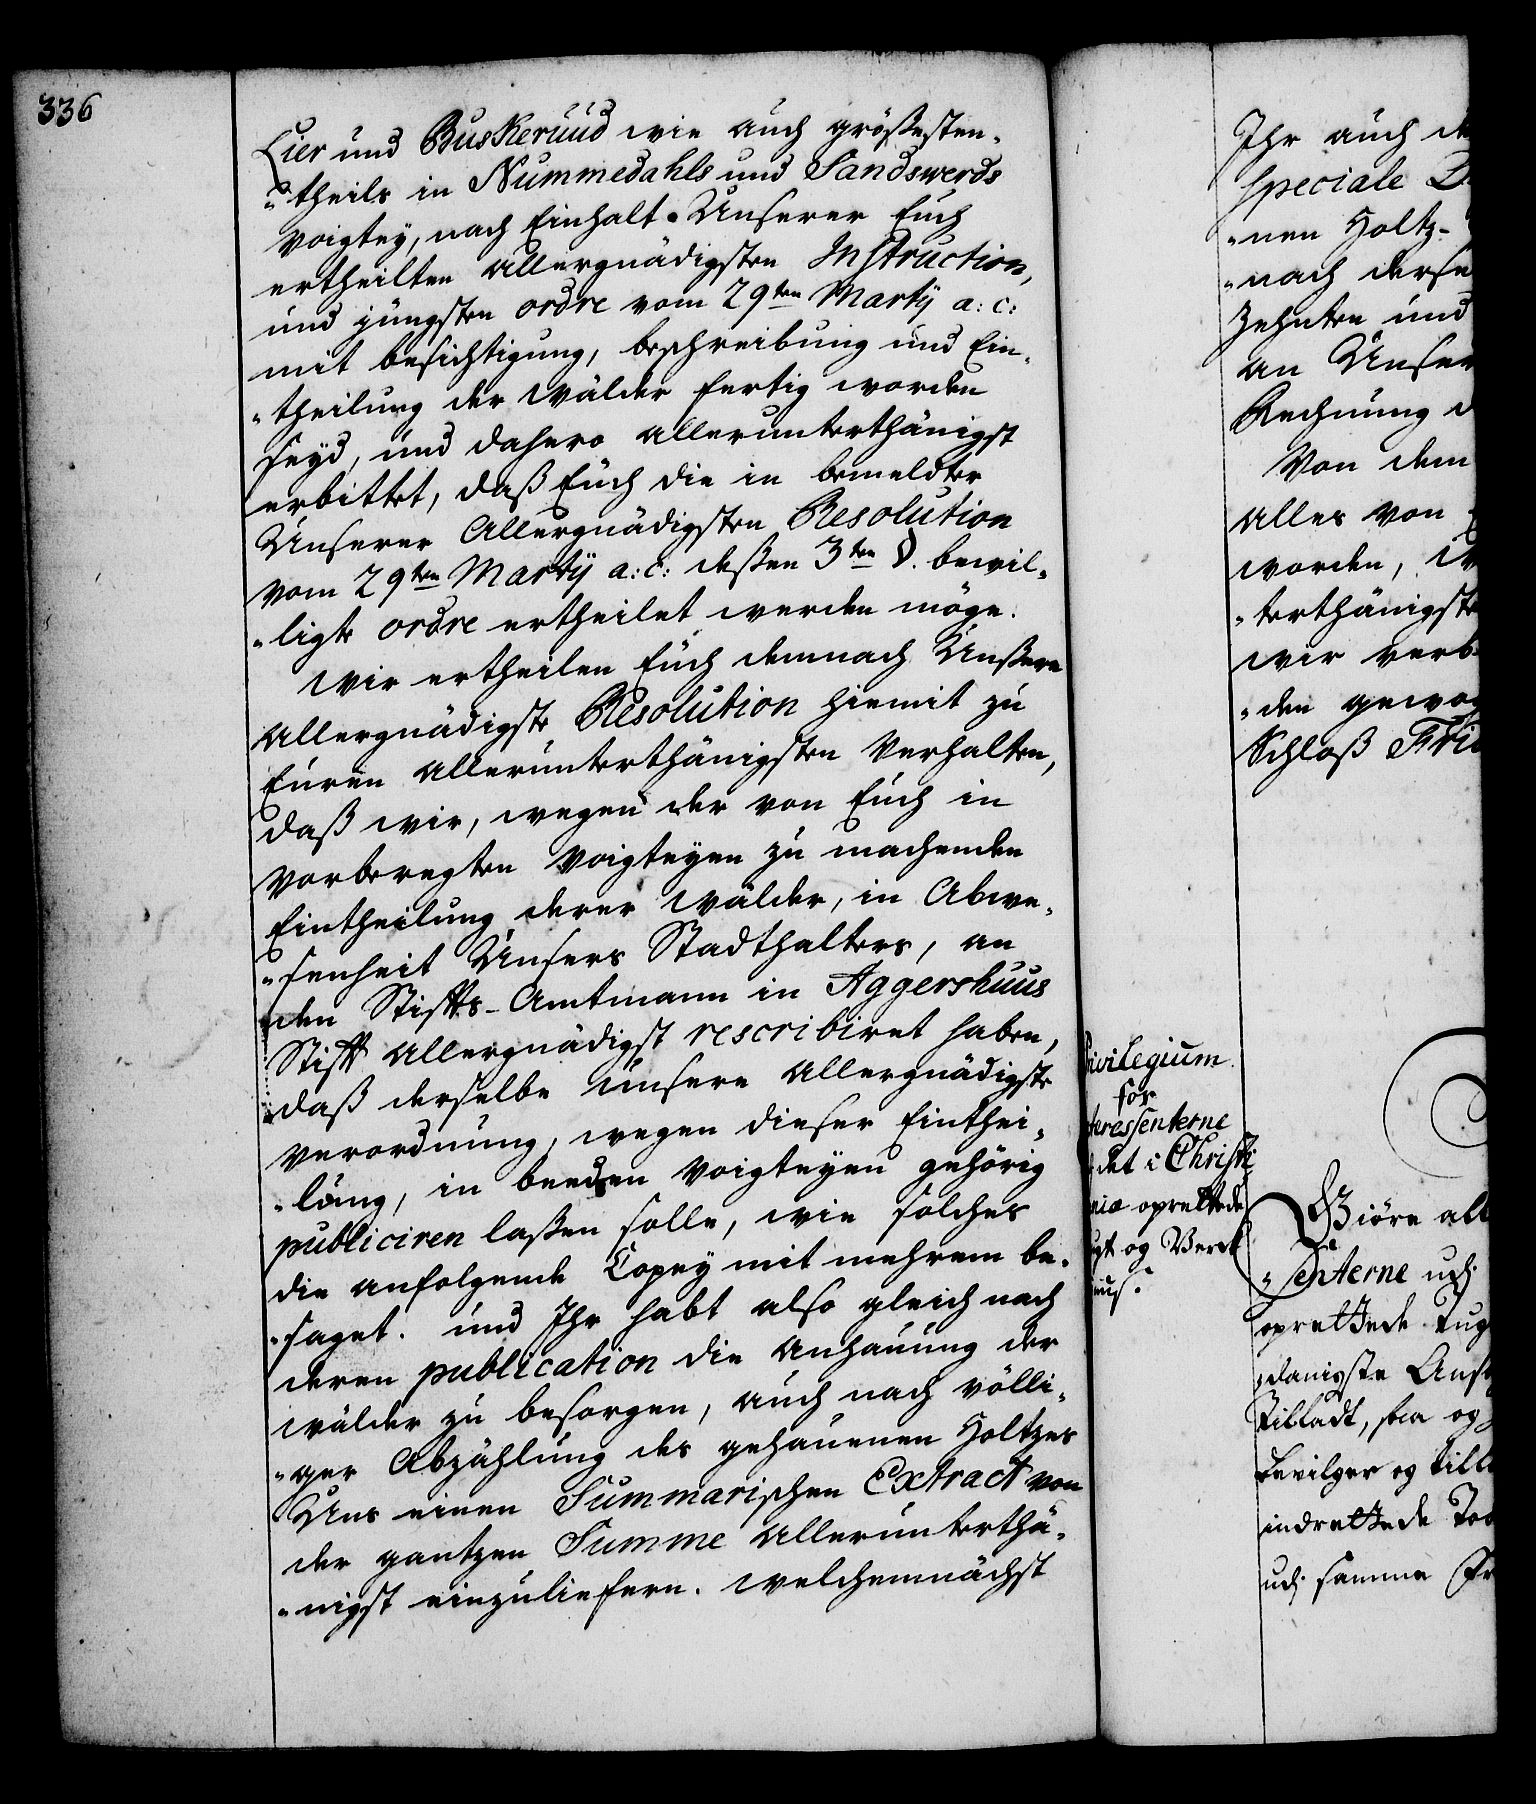 336
Lier und Buskeruud wie auch größesten„
„theils in Nummedahls und Sandswerds
Voigtey, nach Einhalt Unserer Euch
ertheilten Allergnädigsten Instruction,
und jüngsten ordre vom 29ten Martÿ a: c:
mit besichtigung, beschreibung und Ein„
„theilung der Wälder fertig worden
seyd, und dahero allerunterthänigst
erbittet, daß Euch die in bemeldter
Unserer Allergnädigsten Resolution
vom 29ten Martÿ a: c: deßen 3ten §. bewil„
„ligte ordre ertheilet werden möge.
Wir ertheilen Euch demnach Unßere
Allergnädigste Resolution hiemit zu
Euren allerunterthänigsten Verhalten,
daß wir, wegen der von Euch in
vorberegten Voigteyen zu machenden
Eintheilung derer Wälder, in Abwe„
„senheit Unsers Stadthalters, an
den Stiffts-Amtmann in Aggershuus
Stifft Allergnädigst rescribiret haben,
daß derselbe unsere Allergnädigste
Verordnung, wegen dieser Einthei„
„lung, in beeden Voigteyen gehörig
publiciren laßen solle, wie solches
die anfolgende Copey mit mehrem be„
„saget. und Ihr habt also gleich nach
deren publication die Anhauung der
Wälder zu besorgen, auch nach völli„
„ger Abzählung des gehauenen Holtzes
Uns einen Summarischen Extract von
der gantzen Summe allerunterthä„
„nigst einzuliefern. Welchemnächst
Ihr auch
speciale
„nen Holtz-
„nach
Zehnten und
an
Rechnung
Von dem
alles von
worden,
„terthänigste
wir
„den
Schloß
ivilegium
for
teressenterne
det i Christi
nia oprettede
og Verck
huus.
Giöre
„senterne udj
oprettede
Tilladt, saa og
bevilger og
indrettede
udj samme